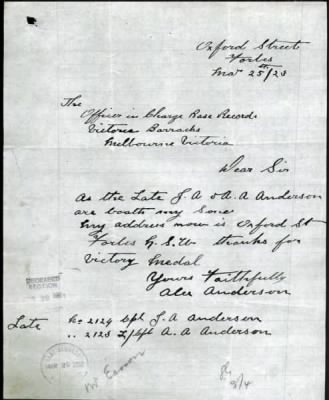 Oxford Street
Forbes
Mar 25th/23
The
Officer in Charge Base Records
Victoria Barracks
Melbourne Victoria
Dear Sir
As the Late J. A & A. A Anderson
are booths my Sons
my address now is Oxford St
Forbes N. S. W thanks for
Victory Medal
Yours Faithfully
Alex Anderson
DECEASED
SECTION
Late No 2129 Cpl J. A Anderson
.. 2128 L/Cpl A. A Anderson
9/4